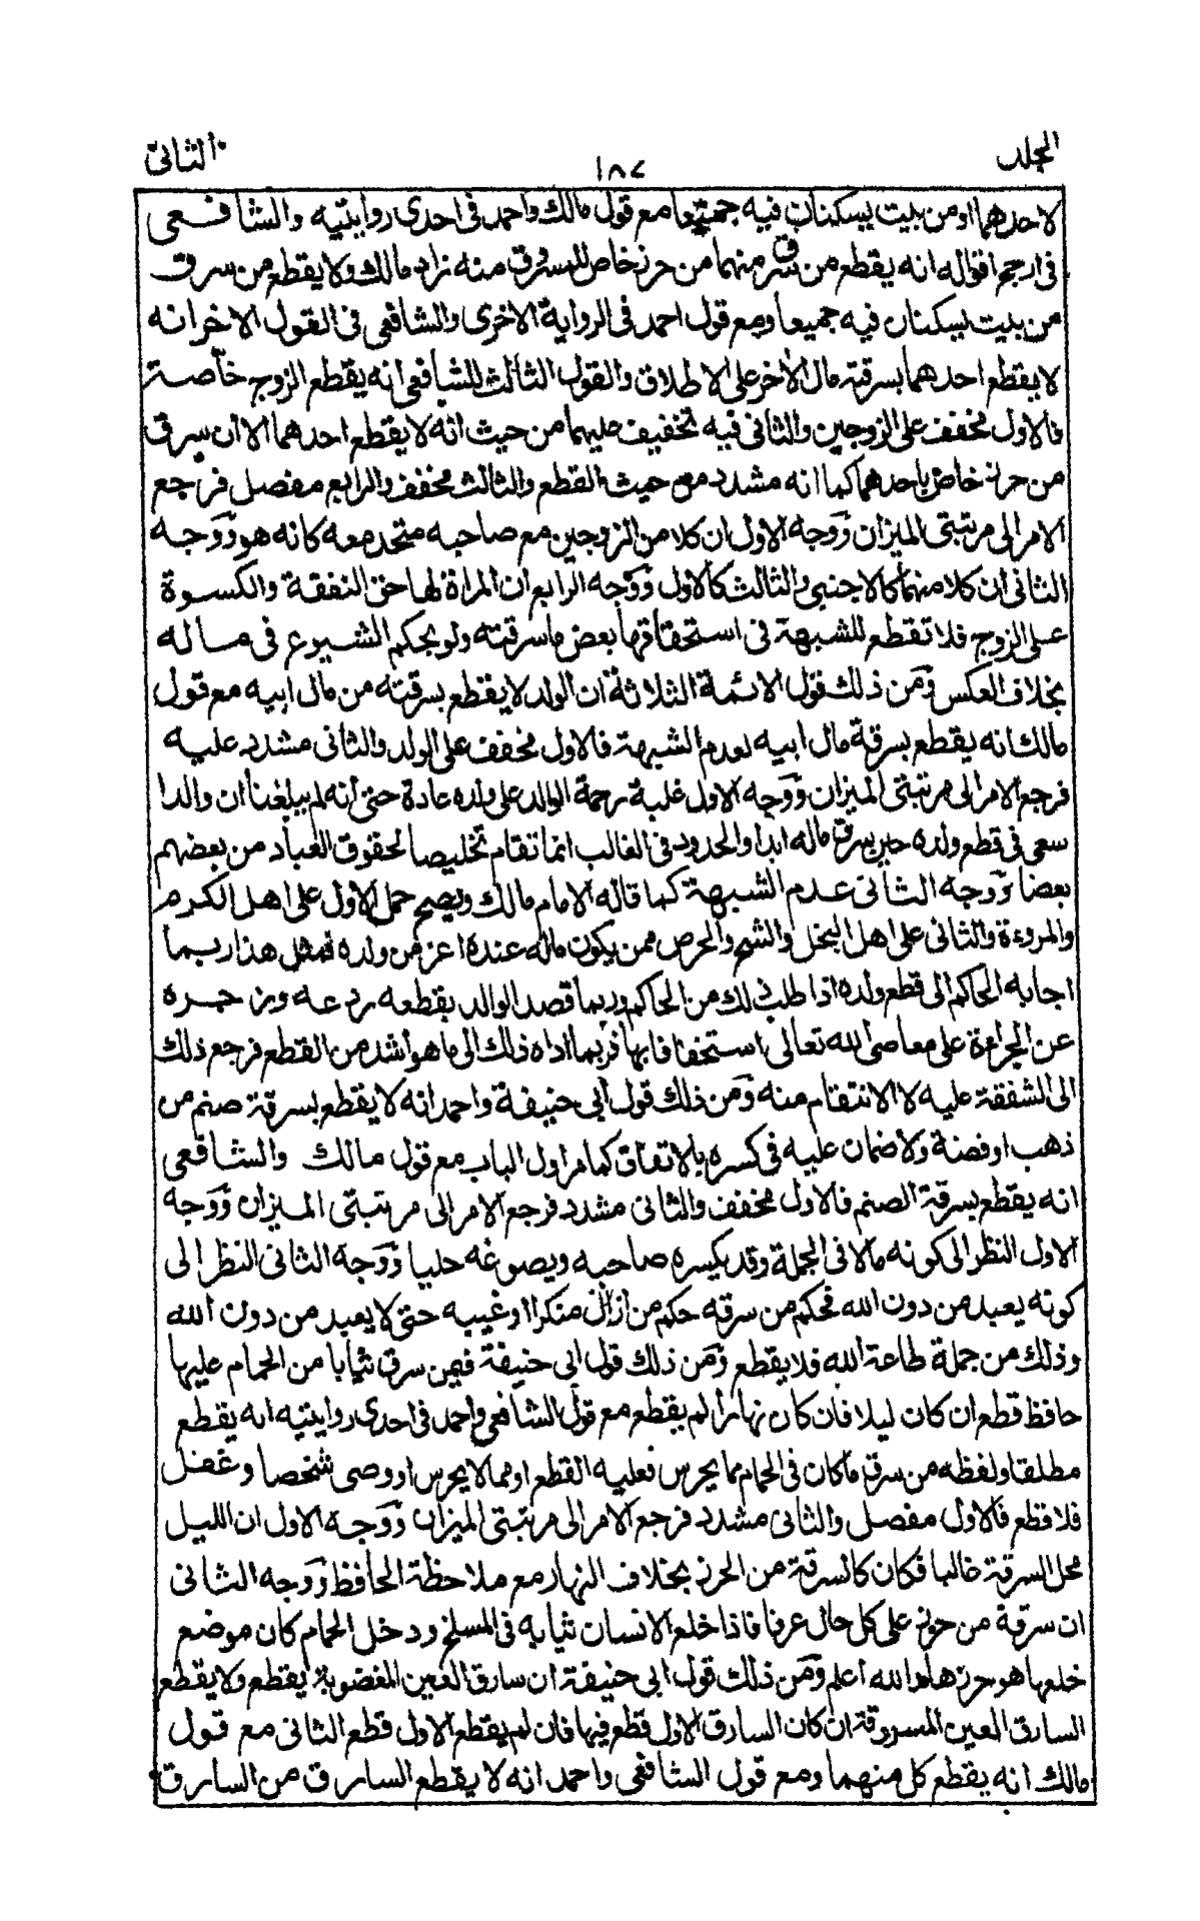 المجلد
١٨٢
الثانى
لاحدهما او من بيت يسكنان فيه جميعا مع قول مالك واحمد فى احدى روايتيه والشافعى
فى ارجح اقواله انه يقطع من سرق منهما من حرز خاص للمسروق منه زاد مالك ولا يقطع من سرق
من بيت يسكنان فيه جميعا ومع قول احمد فى الرواية الاخرى والشافعى فى القول الاخر انه
لا يقطع احدهما بسرقة مال الأخر على الاطلاق والقول الثالث للشافعى انه يقطع الزوج خاصة
فالاول مخفف على الزوجين والثانى فيه تخفيف عليهما من حيث انه لا يقطع احدهما الا ان سرق
من حرز خاص باحدهما كما انه مشدد من حيث القطع والثالث مخفف والرابع مفصل فرجع
الامر الى مرتبتى الميزان ووجه الاول ان كلا من الزوجين مع صاحبه متحد معه كانه هو ووجه
الثانى ان كلا منهما كالاجنبى والثالث كالاول ووجه الرابع ان المراة لها حق النفقة والكسوة
على الزوج فلا تقطع للشبهة فى استحقاقها بعض ما سرقته ولو بحكم الشيوع فى ماله
بخلاف العكس ومن ذلك قول الائمة الثلاثة ان الولد لا يقطع بسرقته من مال ابيه مع قول
مالك انه يقطع بسرقة مال ابيه لعدم الشبهة فالاول مخفف على الولد والثانى مشدد عليه
فرجع الامر الى مرتبتى الميزان ووجه الاول غلبة رحمة الوالد على ولده عادة حتى أنه لم يبلغنا ان والدا
سعى فى قطع ولده حين سرق ماله ابدا والحدود فى الغالب انما تقام تخليصا لحقوق العباد من بعضهم
بعضا ووجه الثانى عدم الشبهة كما قاله الامام مالك ويصح حمل الاول على اهل الكرم
والمروءة والثانى على اهل البخل والشح والحرص ممن يكون ماله عنده اعز من ولده فمثل هذا ربما
اجابه الحاكم الى قطع ولده اذا طلب ذلك من الحاكم وربما قصد الوالد بقطعه ردعه وزجره
عن الجراءة على معاصى الله تعالى استخفافا بها فربما اداه ذلك الى ما هو أشد من القطع فرجع ذلك
الى الشفقة عليه لا الانتقام منه ومن ذلك قول أبى حنيفة واحمد انه لا يقطع بسرقة صنم من
ذهب او فضة ولا ضمان عليه فى كسره بالاتفاق كما مر اول الباب مع قول مالك والشافعى
انه يقطع بسرقة الصنم فالاول مخفف والثانى مشدد فرجع الامر الى مرتبتى الميزان ووجه
الاول النظر الى كونه مالا فى الجملة وقد يكسره صاحبه ويصوغه حليا ووجه الثانى النظر الى
كونه يعبد من دون الله فحكم من سرقه حكم من ازال منكرا او غيبه حتى لا يعبد من دون الله
وذلك من جملة طاعة الله فلا يقطع ومن ذلك قول ابى حنيفة فيمن سرق ثيابا من الحمام عليها
حافظ قطع ان كان ليلا فان كان نهارا لم يقطع مع قول الشافعى واحمد فى احدى روايتيه انه يقطع
مطلقا ولفظه من سرق ما كان فى الحمام مما يحرس فعليه القطع او مما لا يحرس او وصى شخصا وغفل
فلا قطع فالاول مفصل والثانى مشدد فرجع الامر الى مرتبتى الميزان ووجه الاول ان الليل
محل السرقة غالبا فكان كالسرقة من الحرز بخلاف النهار مع ملاحظة الحافظ ووجه الثانى
ان سرقة من حرز على كل حال عرفا فاذا خلع الانسان ثيابه فى المسلخ ودخل الحمام كان موضع
خلعها هو حرزها والله اعلم ومن ذلك قول ابى حنيفة ان سارق العين المغصوبة يقطع ولا يقطع
السارق العين المسروقة ان كان السارق الاول قطع فيها فان لم يقطع الاول قطع الثانى مع قول
مالك انه يقطع كل منهما ومع قول الشافعى واحمد انه لا يقطع السارق من السارق